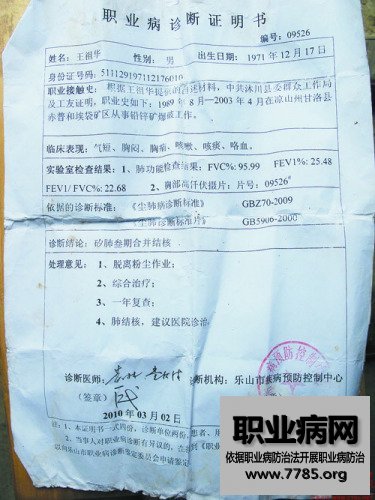 职业病诊断证明书
编号：09526
姓名：王祖华 性别：男 出生日期：1971年12月17日
身份证号码：511129197112176010
职业接触史：根据王祖华提供的自述材料，中共沐川县委群众工作局
及工友证明，职业史如下：1989年8月—2003年4月在凉山州甘洛县
赤普和埃袋矿区从事铅锌矿爆破工作。
临床表现：气短、胸闷、胸痛、咳嗽、咳痰、咯血。
实验室检查结果：1、肺功能检查结果：FVC%：95.99 FEV1%：25.48
FEV1/ FVC%：22.68 2、胸部高仟伏摄片：片号：09526#
依据的诊断标准：《尘肺病诊断标准》 GBZ70-2009
《尘肺病诊断标准片》 GB5906-2000
诊断结论：矽肺叁期合并结核
处理意见：1、脱离粉尘作业；
2、综合治疗；
3、一年复查；
4、肺结核，建议医院诊治
诊断医师： 诊断机构：乐山市疾病预防控制中心
(签章)
2010年03月02日
注：1、本证明书一式四份，诊断单位两份，
2、当事人对职业病诊断有异议的，
以向乐山市职业病诊断鉴定委员会申请鉴定
职业病网
依据职业病防治法开展职业病防治
www.7785.org